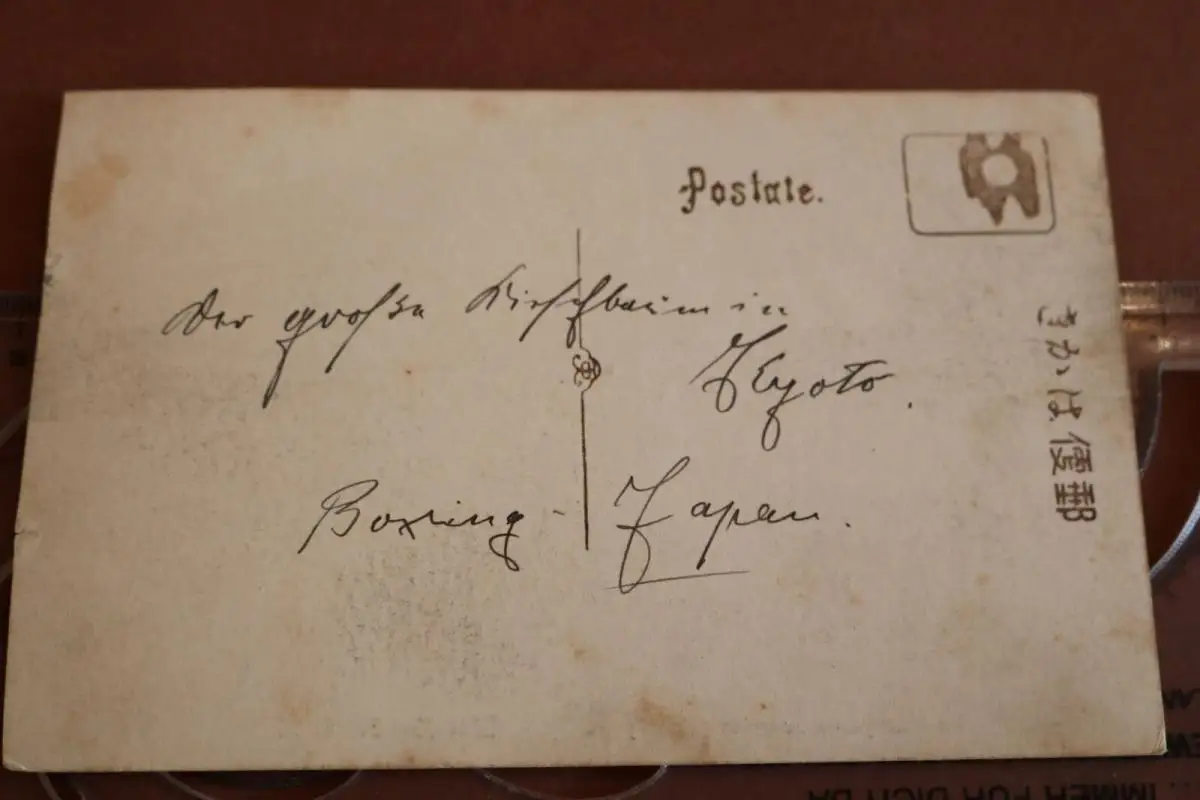 Postale.
Der große Kirschbaum in
Kyoto.
Boxring - Japan.
きかは便郵
IMMER FÜR DICH DA